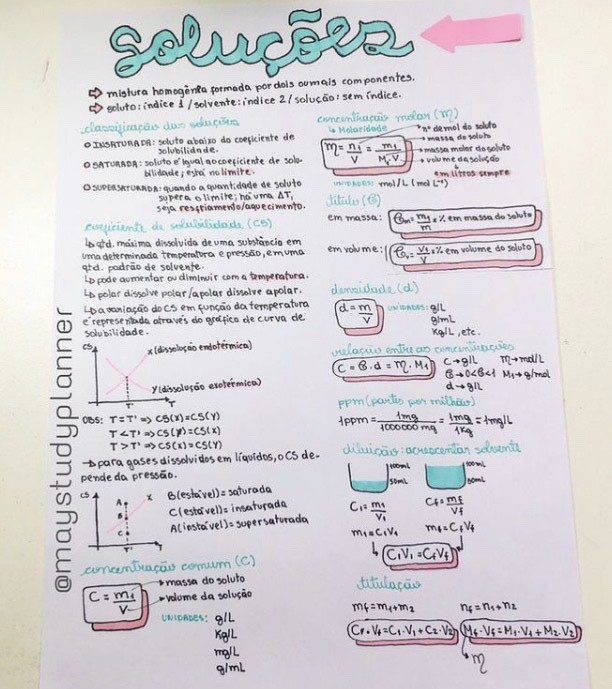 soluções
⇨ mistura homogênia formada por dois ou mais componentes.
⇨ soluto: índice 1 / solvente: índice 2 / solução: sem índice.
classificação das soluções
INSATURADA: soluto abaixo do coeficiente de
solubilidade.
SATURADA: soluto é igual ao coeficiente de solu-
bilidade; está no limite.
SUPERSATURADA: quando a quantidade de soluto
supera o limite; há uma ΔT,
seja resfriamento/aquecimento.
coeficiente de solubilidade (CS)
↳ qtd. máxima dissolvida de uma substância em
uma determinada temperatura e pressão, em uma
qtd. padrão de solvente.
↳ pode aumentar ou diminuir com a temperatura.
↳ polar dissolve polar / apolar dissolve apolar.
↳ a variação do CS em função da temperatura
é representada através do gráfico de curva de
solubilidade.
CS
X (dissolução endotérmica)
Y (dissolução exotérmica)
T'
T
OBS: T = T' => CS(X) = CS(Y)
T < T' => CS(X) = CS(Y)
T > T' => CS(X) = CS(Y)
→ para gases dissolvidos em líquidos, o CS de-
pende da pressão.
CS
A
B
C
X
T'
T
B (estável) = saturada
C (estável) = insaturada
A (instável) = supersaturada
concentração comum (C)
C = m₁/V
massa do soluto
volume da solução
UNIDADES: g/L
Kg/L
mg/L
g/mL
concentração molar (M)
↳ Molaridade
M = n₁/V = m₁/M₁·V
nº de mol do soluto
massa do soluto
massa molar do soluto
volume da solução
em litros sempre
UNIDADES: mol/L (mol L⁻¹)
título (τ)
em massa: τm = m₁/m × % em massa do soluto
em volume: τv = V₁/V × % em volume do soluto
densidade (d)
d = m/V
UNIDADES: g/L
g/mL
Kg/L, etc.
relação entre as concentrações
C = τ · d = M · M₁
C → g/L
τ → 0<τ<1
d → g/L
M → mol/L
M₁ → g/mol
ppm (partes por milhão)
1ppm = 1mg/1000000 mg = 1mg/1Kg = 1mg/L
diluição: acrescentar solvente
100mL
50mL
100mL
50mL
C₁ = m₁/V₁
Cf = mf/Vf
m₁ = C₁V₁
mf = CfVf
C₁V₁ = CfVf
titulação
mf = m₁ + m₂
nf = n₁ + n₂
Cf · Vf = C₁·V₁ + C₂·V₂
Mf·Vf = M₁·V₁ + M₂·V₂
M
@maystudyplanner